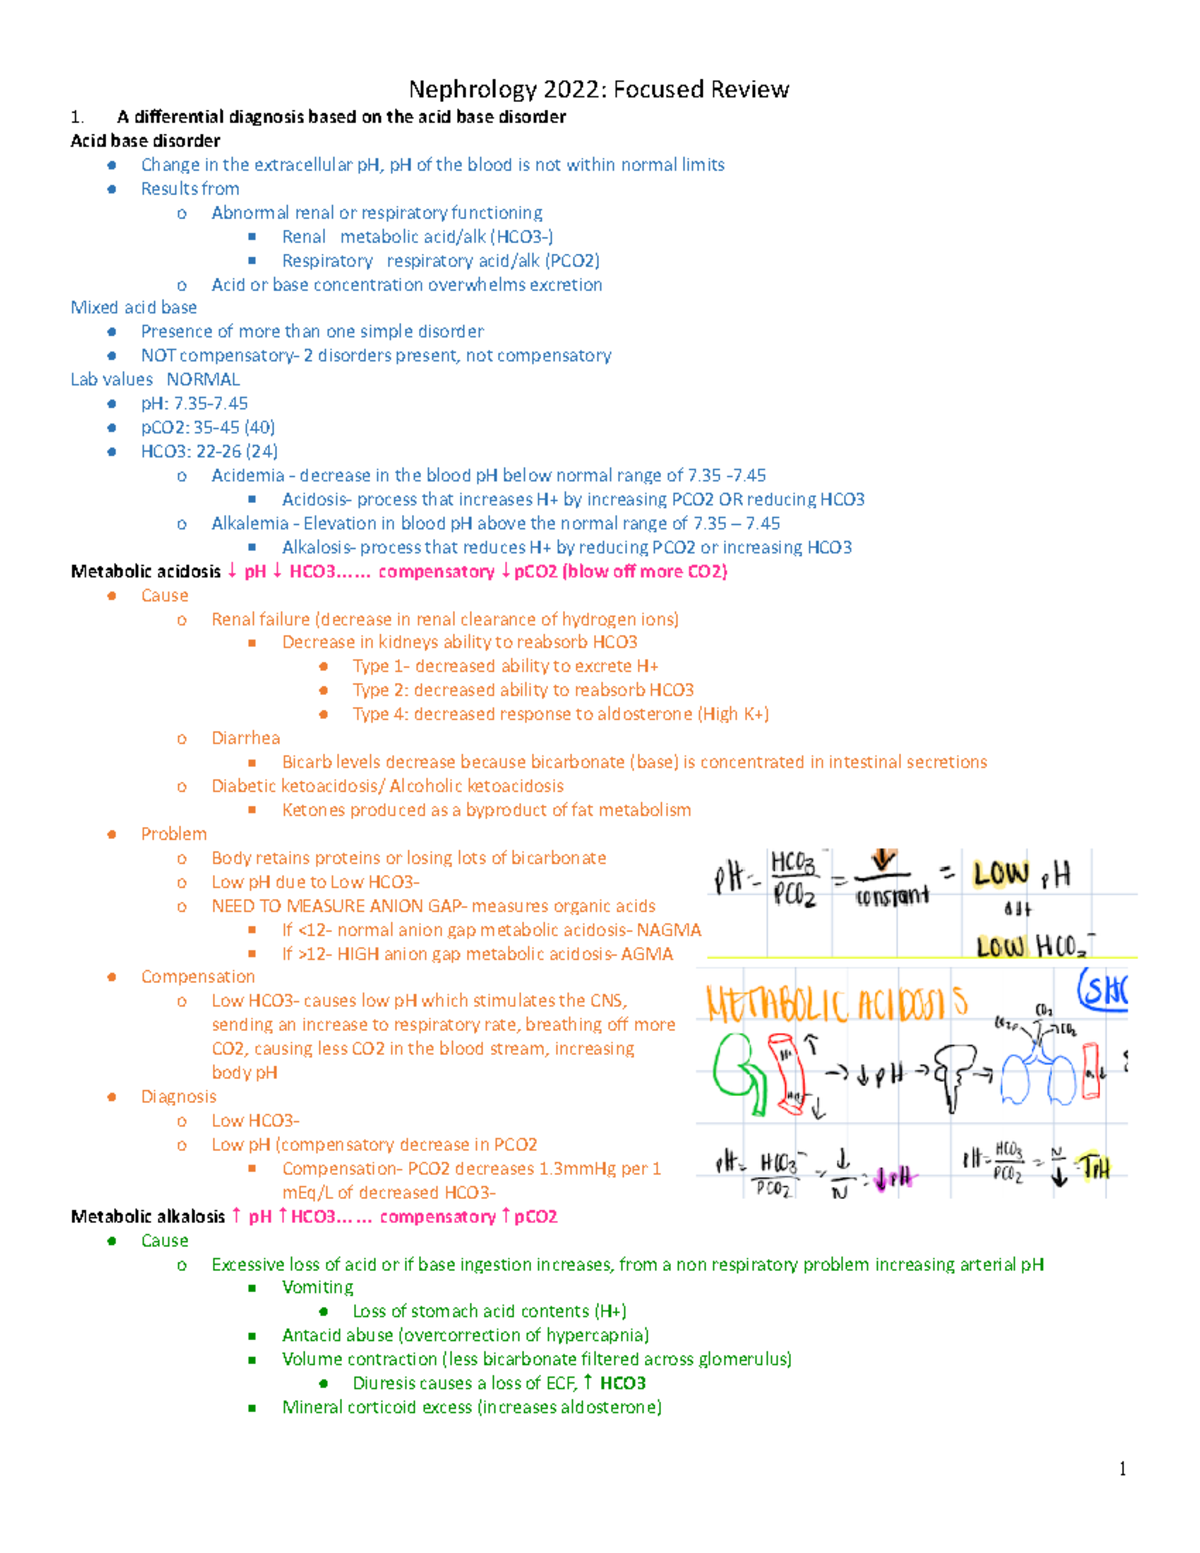 Nephrology 2022: Focused Review
1. A differential diagnosis based on the acid base disorder
Acid base disorder
● Change in the extracellular pH, pH of the blood is not within normal limits
● Results from
o Abnormal renal or respiratory functioning
▪ Renal metabolic acid/alk (HCO3-)
▪ Respiratory respiratory acid/alk (PCO2)
o Acid or base concentration overwhelms excretion
Mixed acid base
● Presence of more than one simple disorder
● NOT compensatory- 2 disorders present, not compensatory
Lab values NORMAL
● pH: 7.35-7.45
● pCO2: 35-45 (40)
● HCO3: 22-26 (24)
o Acidemia - decrease in the blood pH below normal range of 7.35 -7.45
▪ Acidosis- process that increases H+ by increasing PCO2 OR reducing HCO3
o Alkalemia - Elevation in blood pH above the normal range of 7.35 – 7.45
▪ Alkalosis- process that reduces H+ by reducing PCO2 or increasing HCO3
Metabolic acidosis ↓ pH ↓ HCO3…… compensatory ↓pCO2 (blow off more CO2)
● Cause
o Renal failure (decrease in renal clearance of hydrogen ions)
▪ Decrease in kidneys ability to reabsorb HCO3
● Type 1- decreased ability to excrete H+
● Type 2: decreased ability to reabsorb HCO3
● Type 4: decreased response to aldosterone (High K+)
o Diarrhea
▪ Bicarb levels decrease because bicarbonate (base) is concentrated in intestinal secretions
o Diabetic ketoacidosis/ Alcoholic ketoacidosis
▪ Ketones produced as a byproduct of fat metabolism
● Problem
o Body retains proteins or losing lots of bicarbonate
o Low pH due to Low HCO3-
o NEED TO MEASURE ANION GAP- measures organic acids
▪ If <12- normal anion gap metabolic acidosis- NAGMA
▪ If >12- HIGH anion gap metabolic acidosis- AGMA
● Compensation
o Low HCO3- causes low pH which stimulates the CNS,
sending an increase to respiratory rate, breathing off more
CO2, causing less CO2 in the blood stream, increasing
body pH
● Diagnosis
o Low HCO3-
o Low pH (compensatory decrease in PCO2
▪ Compensation- PCO2 decreases 1.3mmHg per 1
mEq/L of decreased HCO3-
pH = HCO3⁻ / PCO2 = ↓ / constant = LOW pH
LOW HCO3⁻
METABOLIC ACIDOSIS
H+ ↑ → ↓ pH → → CO2 CO2
pH = HCO3⁻ / PCO2 = ↓ / N = ↓pH
pH = HCO3 / PCO2 = N / ↓ = ↑pH
Metabolic alkalosis ↑ pH ↑HCO3…… compensatory ↑pCO2
● Cause
o Excessive loss of acid or if base ingestion increases, from a non respiratory problem increasing arterial pH
▪ Vomiting
● Loss of stomach acid contents (H+)
▪ Antacid abuse (overcorrection of hypercapnia)
▪ Volume contraction (less bicarbonate filtered across glomerulus)
● Diuresis causes a loss of ECF, ↑ HCO3
▪ Mineral corticoid excess (increases aldosterone)
1